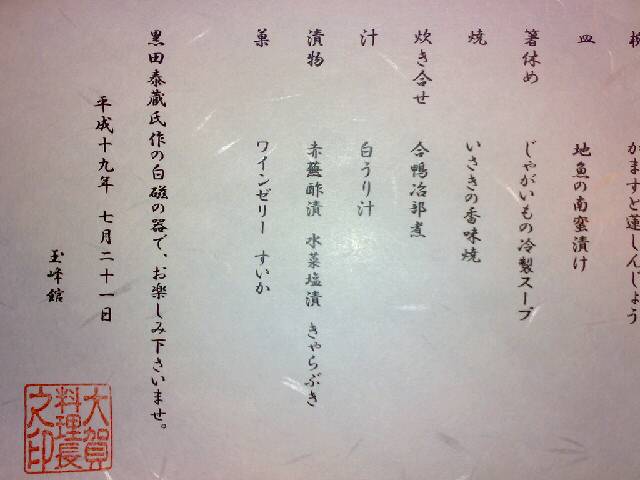 椀　かますと蓮しんじょう
皿　地魚の南蛮漬け
箸休め　じゃがいもの冷製スープ
焼　いさきの香味焼
炊き合せ　合鴨冶部煮
汁　白うり汁
漬物　赤蕪酢漬　水菜塩漬　きゃらぶき
菓　ワインゼリー　すいか
黒田泰蔵氏作の白磁の器で、お楽しみ下さいませ。
平成十九年　七月二十一日
玉峰館
大賀
料理長
之印